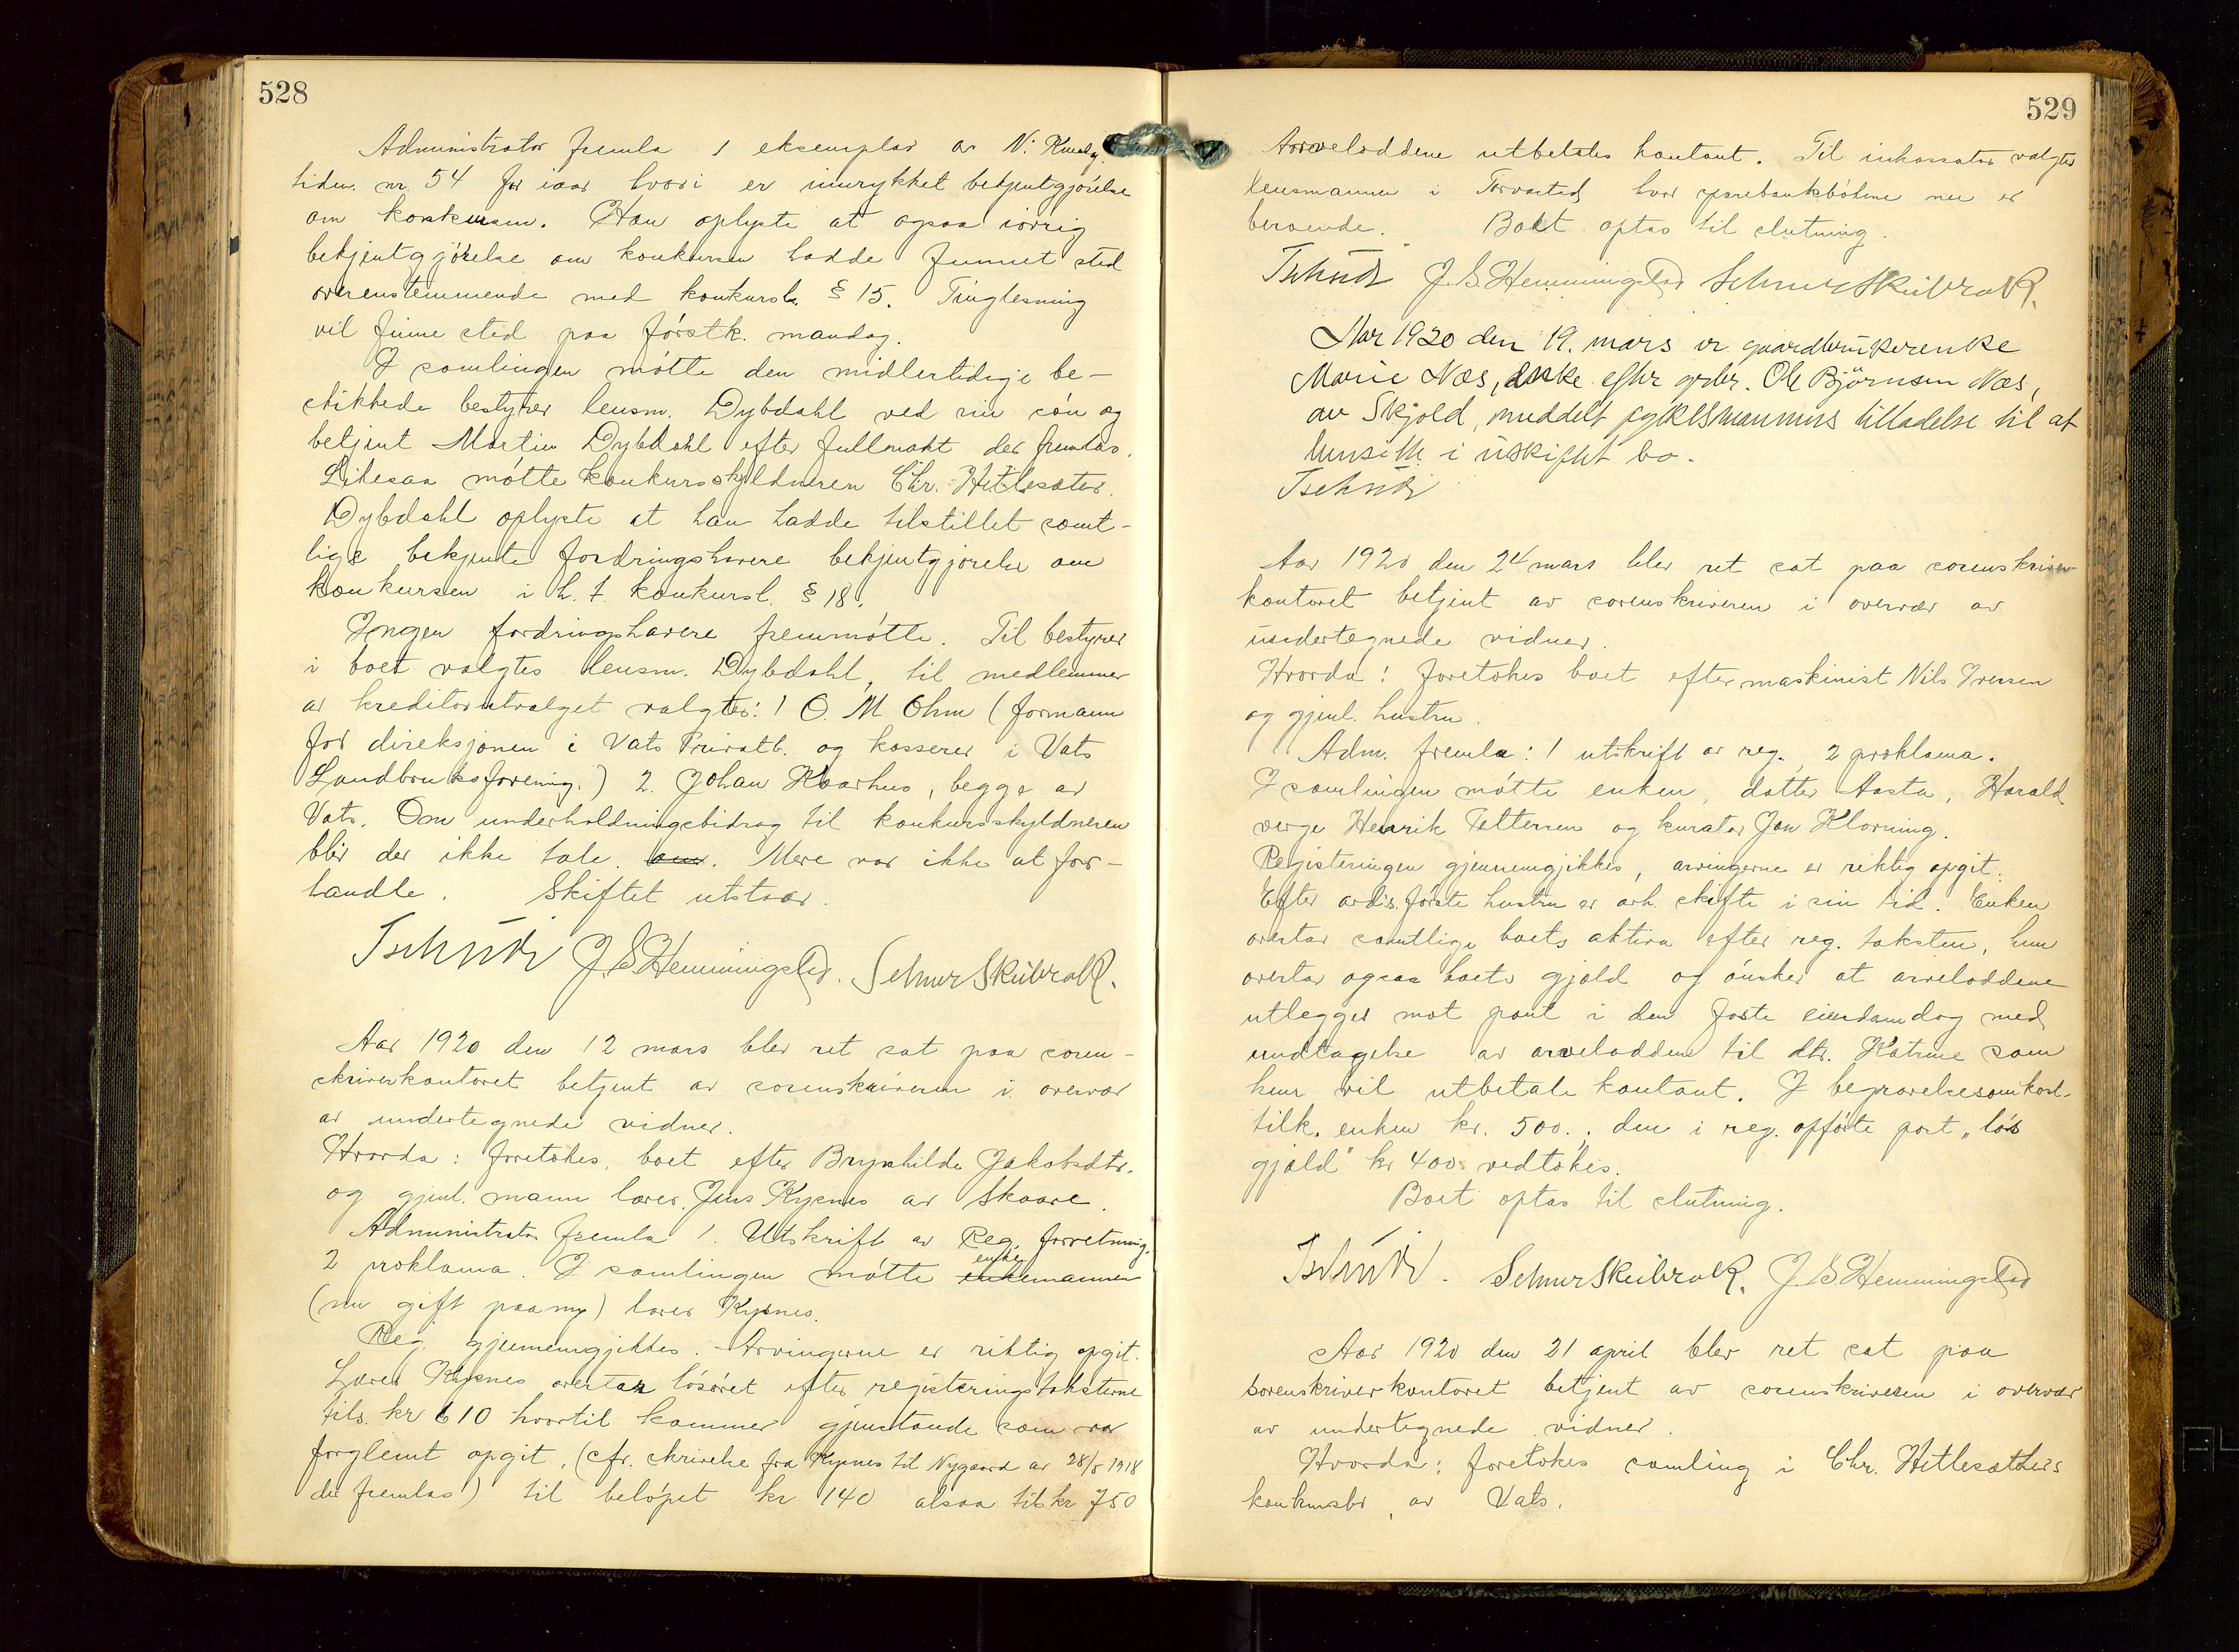 528
Administrator fremla 1 eksemplar av N. Kundg.
tiden. nr. 54 for iaar hvori er inrykket bekjentgjørelse
om konkursen. Han oplyste at ogsaa iøvrig
bekjentgjørelse om konkursen hadde funnet sted
overenstemmende med konkursl. § 15. Tinglesning
vil finne sted paa førstk. mandag.
I samlingen møtte den midlertidige be-
stikkede bestyrer lensm. Dybdahl ved sin søn og
betjent Martin Dybdahl efter fullmakt der fremlas.
Likesaa møtte konkursskyldneren Chr. Hetlesæter.
Dybdahl oplyste at han hadde tilstillet samt-
lige bekjente fordringshavere bekjentgjørelse om
konkursen i h. t. konkursl. § 18.
Ingen fordringshavere fremmøtte. Til bestyrer
i boet valgtes lensm. Dybdahl, til medlemmer
av kreditorutvalget valgtes: 1 O. M. Ohm (formann
for direksjonen i Vats Privatb. og kasserer i Vats
Landbruksforening.) 2. Johan Kaarhus, begge av
Vats. Om underholdningsbidrag til konkursskyldneren
blir der ikke tale. om. Mere var ikke at for-
handle. Skiftet utstaar.
Tschudi J. S. Hemmingstad. Selmer Skeibrok.
Aar 1920 den 12 mars blev ret sat paa soren-
skriverkontoret betjent av sorenskriveren i overvær
av undertegnede vidner.
Hvorda: foretokes boet efter Brynhilde Jakobsdtr.
og gjenl. mann lærer Jens Kypnes av Skaare.
Administrator fremla 1. Utskrift av Reg. forretning.
2 proklama. I samlingen møtte enkemannen
enke
(nu gift paany) lærer Kypnes.
Reg. gjennemgikkes. Arvingerne er riktig opgit.
Lærer Kypnes overtar løsøret efter registeringstaksterne
tils. kr 610 hvortil kommer gjenstande som var
forglemt opgit, (cfr. skrivelse fra Kypnes til Nygaard av 28/8 1918
der fremlas) til beløpet kr 140 alsaa tils kr 750
529
Arveloddene utbetales kontant. Til inkassator valgtes
lensmannen i Torvastad hvor sparebankbøkene nu er
beroende. Boet optas til slutning.
Tschudi J. S. Hemmingstad Selmer Skeibrok.
Aar 1920 den 19. mars er gaardbrukerenke
Marie Næs, enke efter grdbr. Ole Björnsen Næs,
av Skjold, meddelt fylkesmannens tilladelse til at
hensitte i uskiftet bo.
Tschudi
Aar 1920 den 24 mars blev ret sat paa sorenskriver
kontoret betjent av sorenskriveren i overvær av
undertegnede vidner.
Hvorda: foretokes boet efter maskinist Nils Iversen
og gjenl. hustru.
Adm. fremla: 1 utskrift av reg., 2 proklama.
I samlingen møtte enken, datter Aasta, Harald
verge Henrik Pettersen og kurator Jon Klovning.
Registeringen gjennemgjikkes, arvingerne er riktig opgit.
Efter avd's. første hustru er avh. skifte i sin tid. Enken
overtar samtlige boets aktiva efter reg. taksten, hun
overtar ogsaa boets gjæld og ønsker at arveloddene
utlegges mot pant i den faste eiendom dog med
undtagelse av arveloddene til dtr. Katrine som
hun vil utbetale kontant. I begravelsesomkost.
tilk. enken kr. 500.; den i reg. opførte post "løs
gjæld" kr 400 vedtokes.
Boet optas til slutning.
Tschudi. Selmer Skeibrok. J. S. Hemmingstad
Aar 1920 den 21 april blev ret sat paa
sorenskriverkontoret betjent av sorenskriveren i overvær
av undertegnede vidner.
Hvorda: foretokes samling i Chr. Hetlesæthers
konkursbo av Vats.